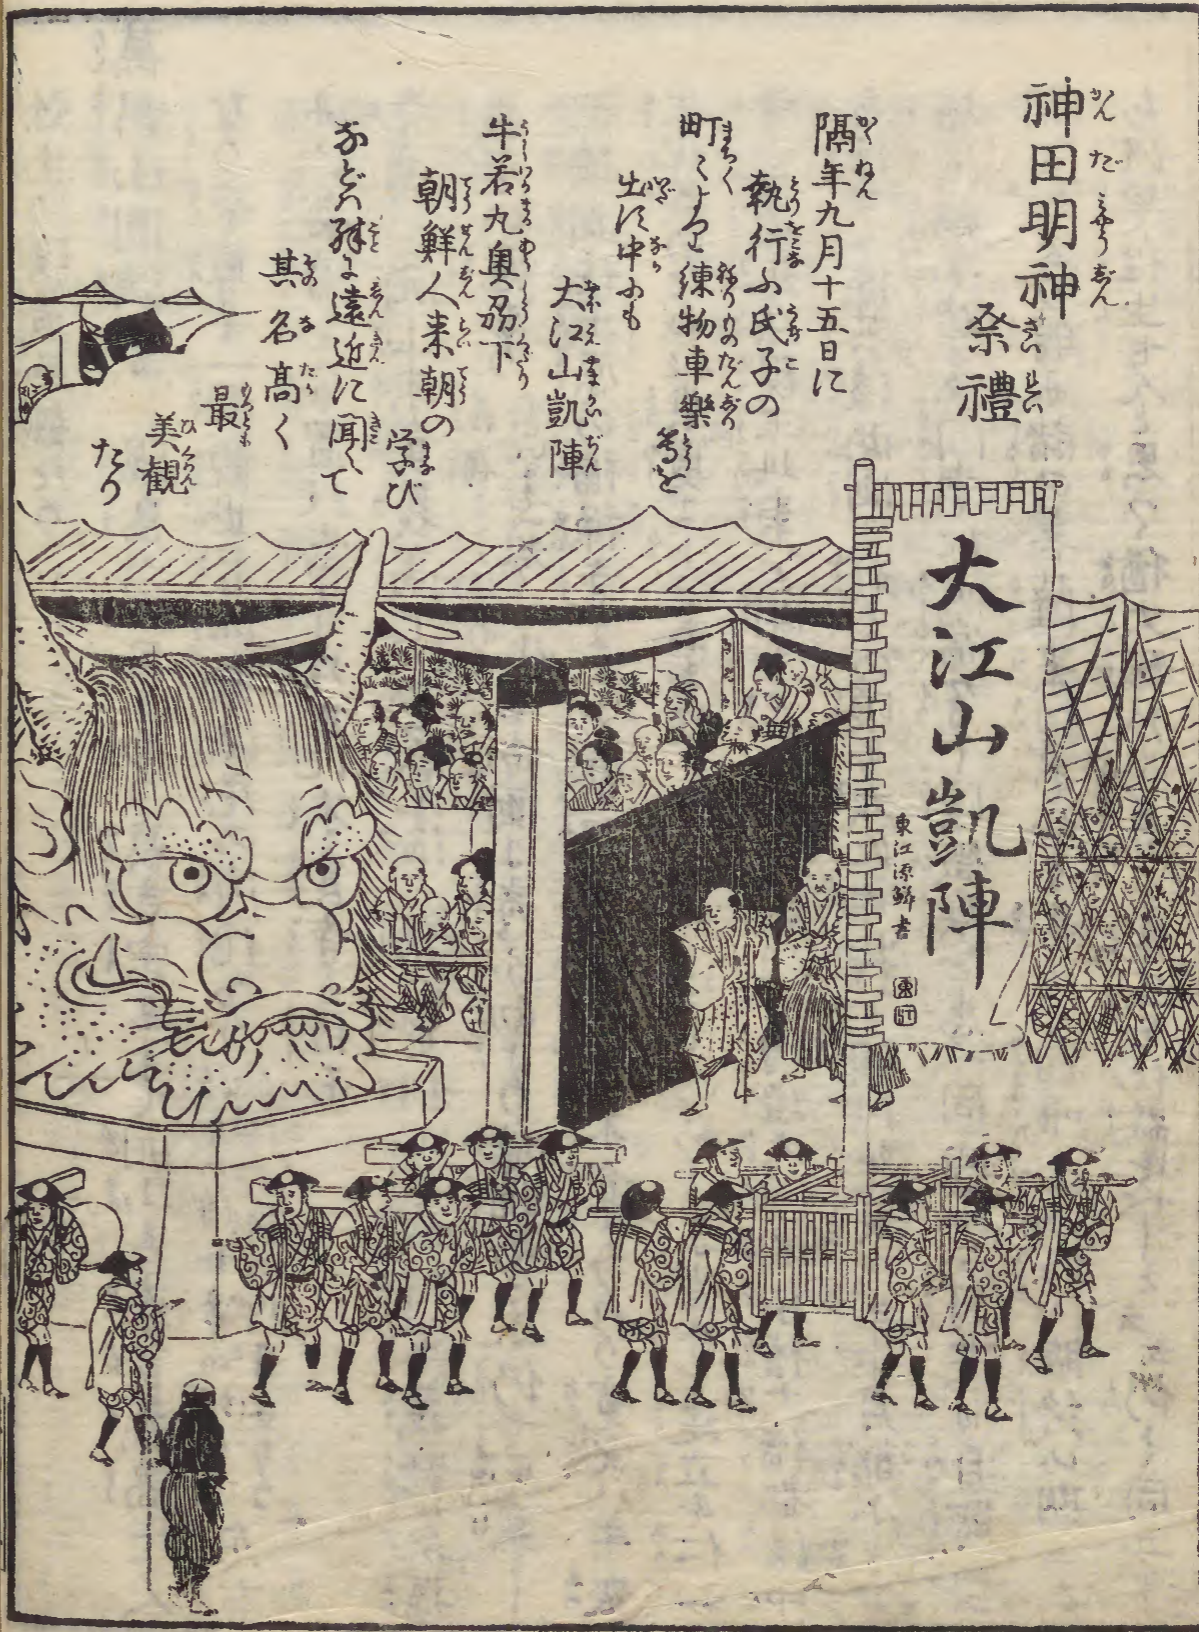 神田明神
祭禮
隔年九月十五日に
執行ふ氏子の
町〻より練物車樂
等を
出す中にも
大江山凱陣
牛若丸奥刕下
朝鮮人来朝の
学び
などハ殊に遠近に聞えて
其名高く
最
美観
たり
大江山凱陣
東江源鱗書
東江